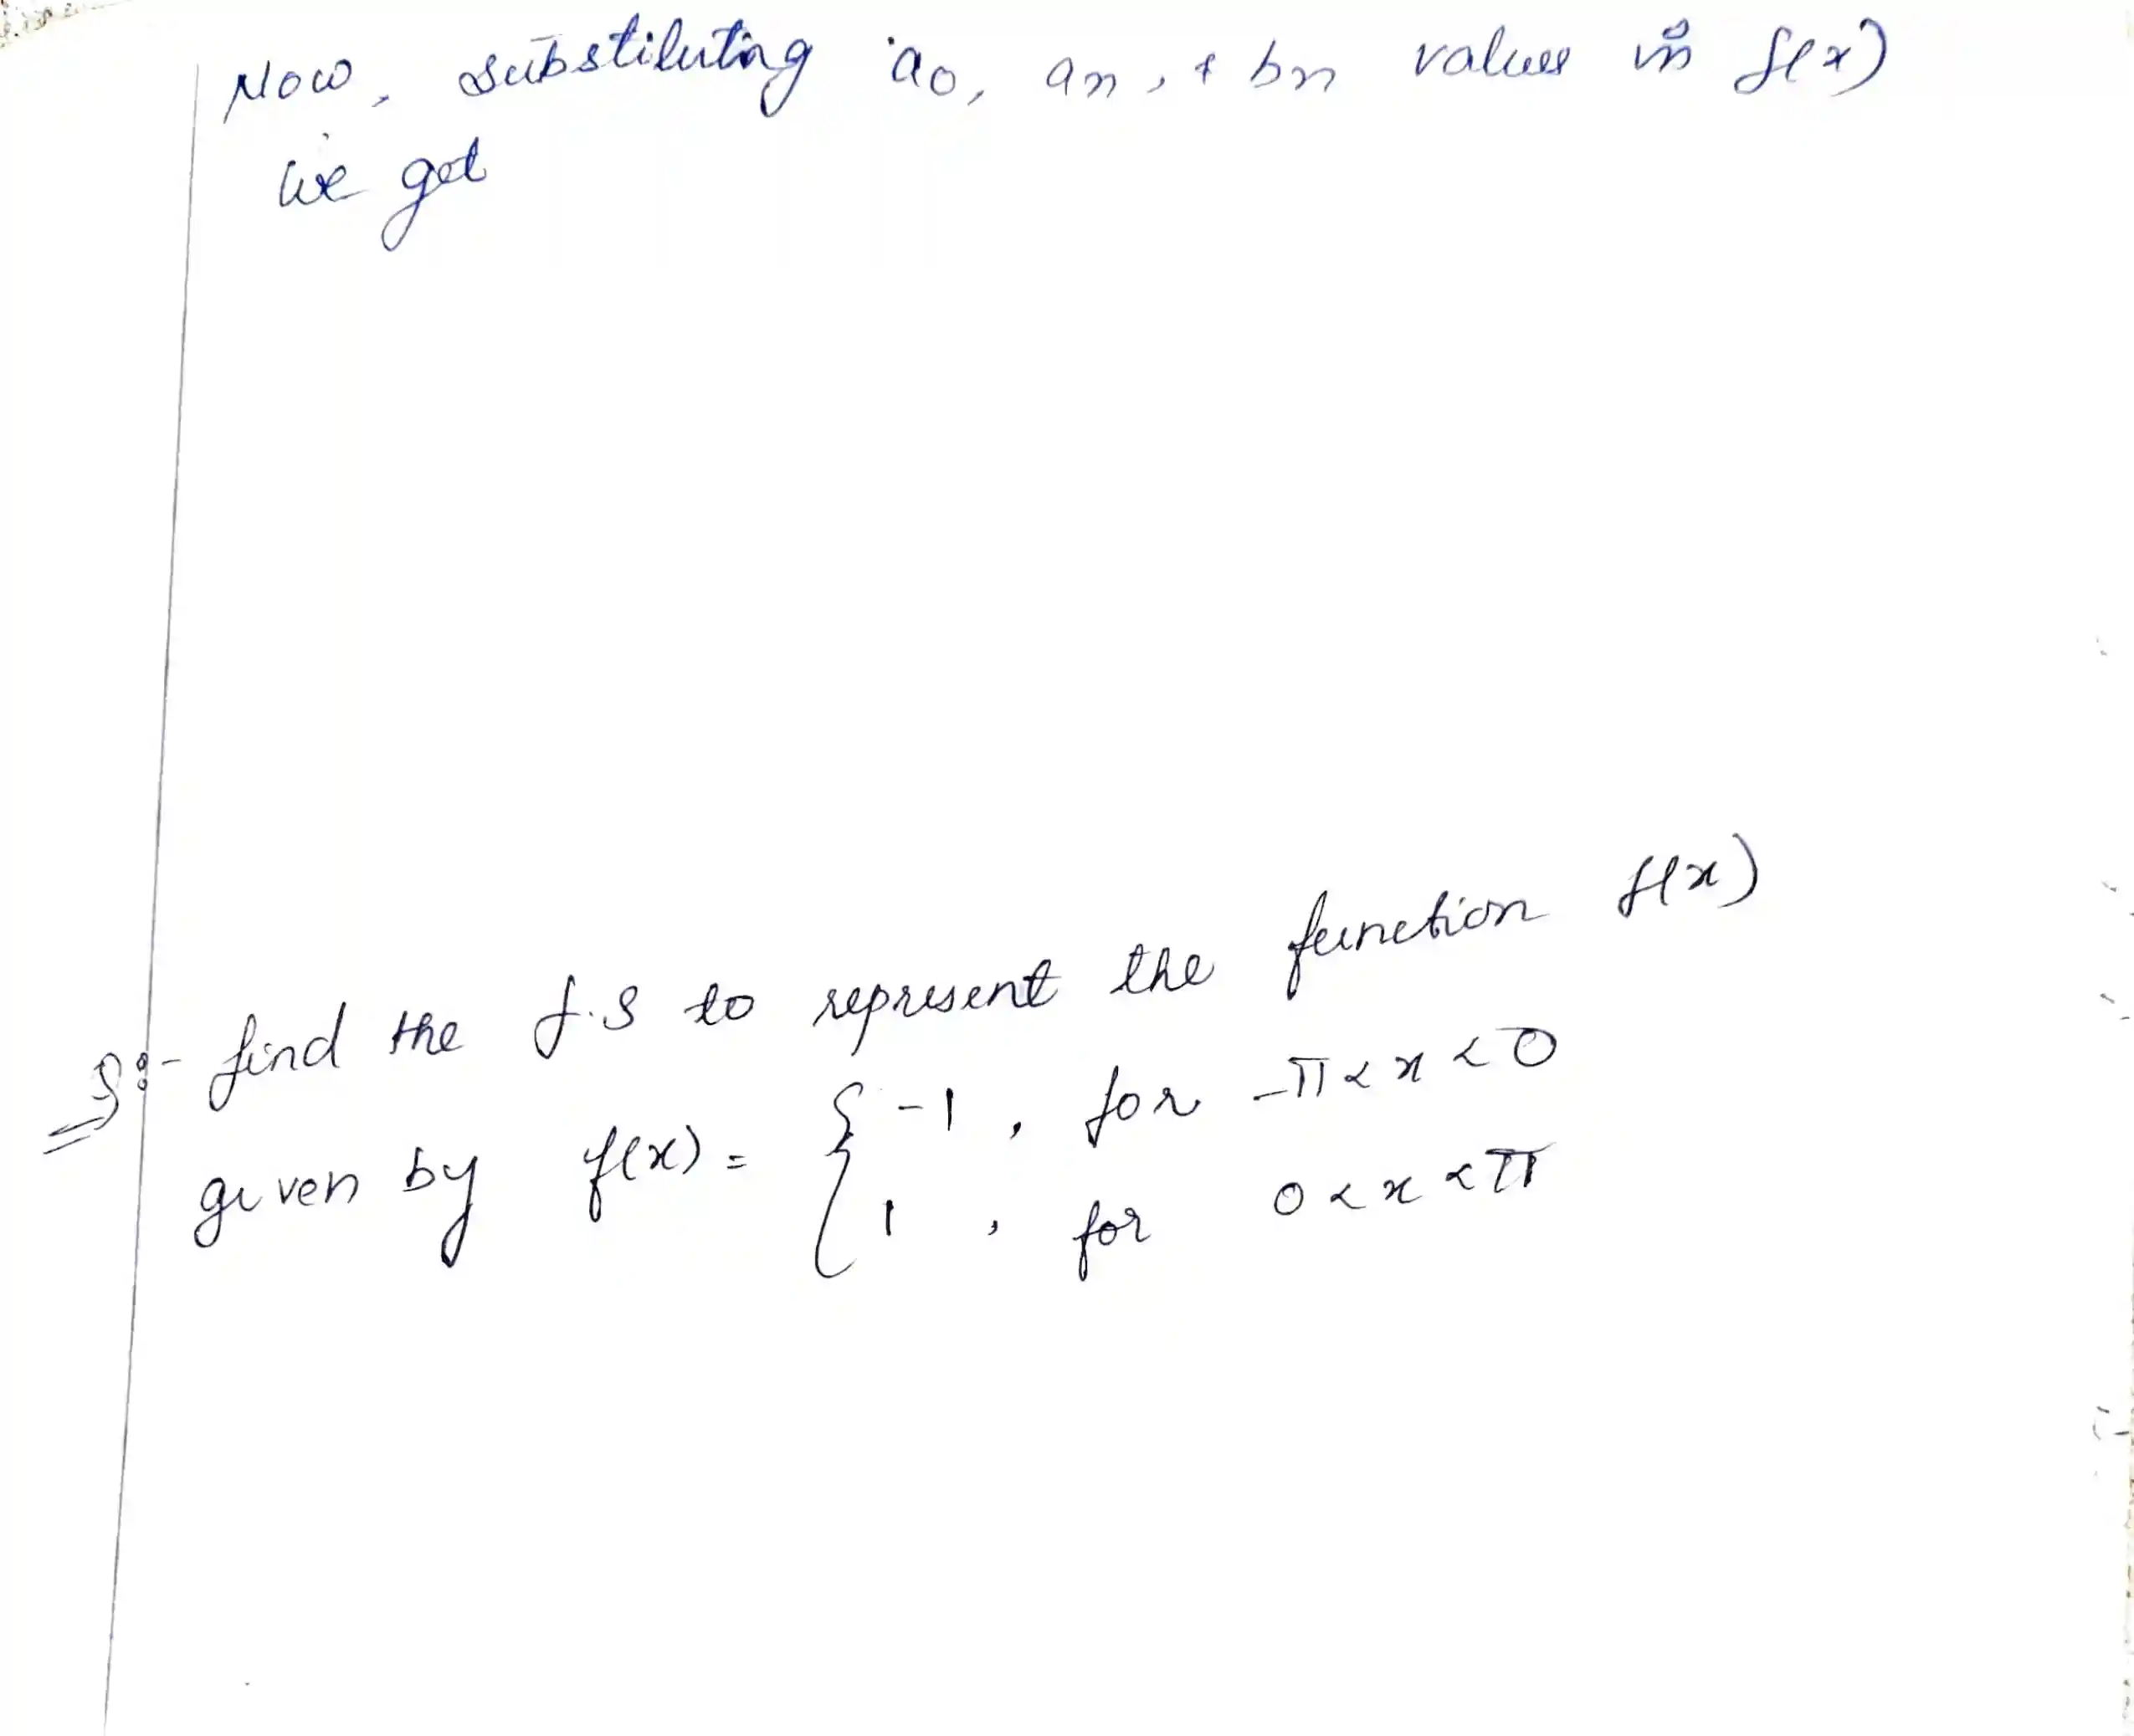 Now, substituting a0, an, & bn values in f(x)
we get
9:- find the f.S to represent the function f(x)
given by f(x) = { -1 , for -π < x < 0
1 , for 0 < x < π